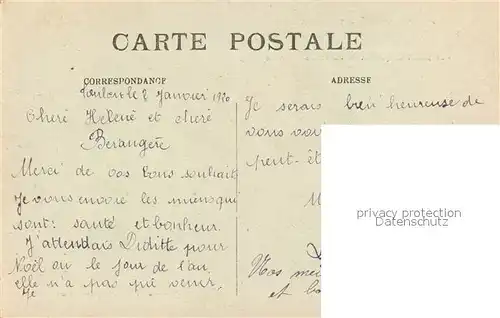 CARTE POSTALE
CORRESPONDANCE
ADRESSE
Toulon le 2 Janvier 1920
Cheré Helene et cheré
Berangère
Merci de vos bons souhaits
Je vous envoie les miens qui
sont: santé et bonheur.
J'attendais Diditte pour
Noël ou le jour de l'an
elle n'a pas pue venir.
Je
Je serais bien heureuse de
vous
peut-êt
privacy protection
Datenschutz
Nos mei
et